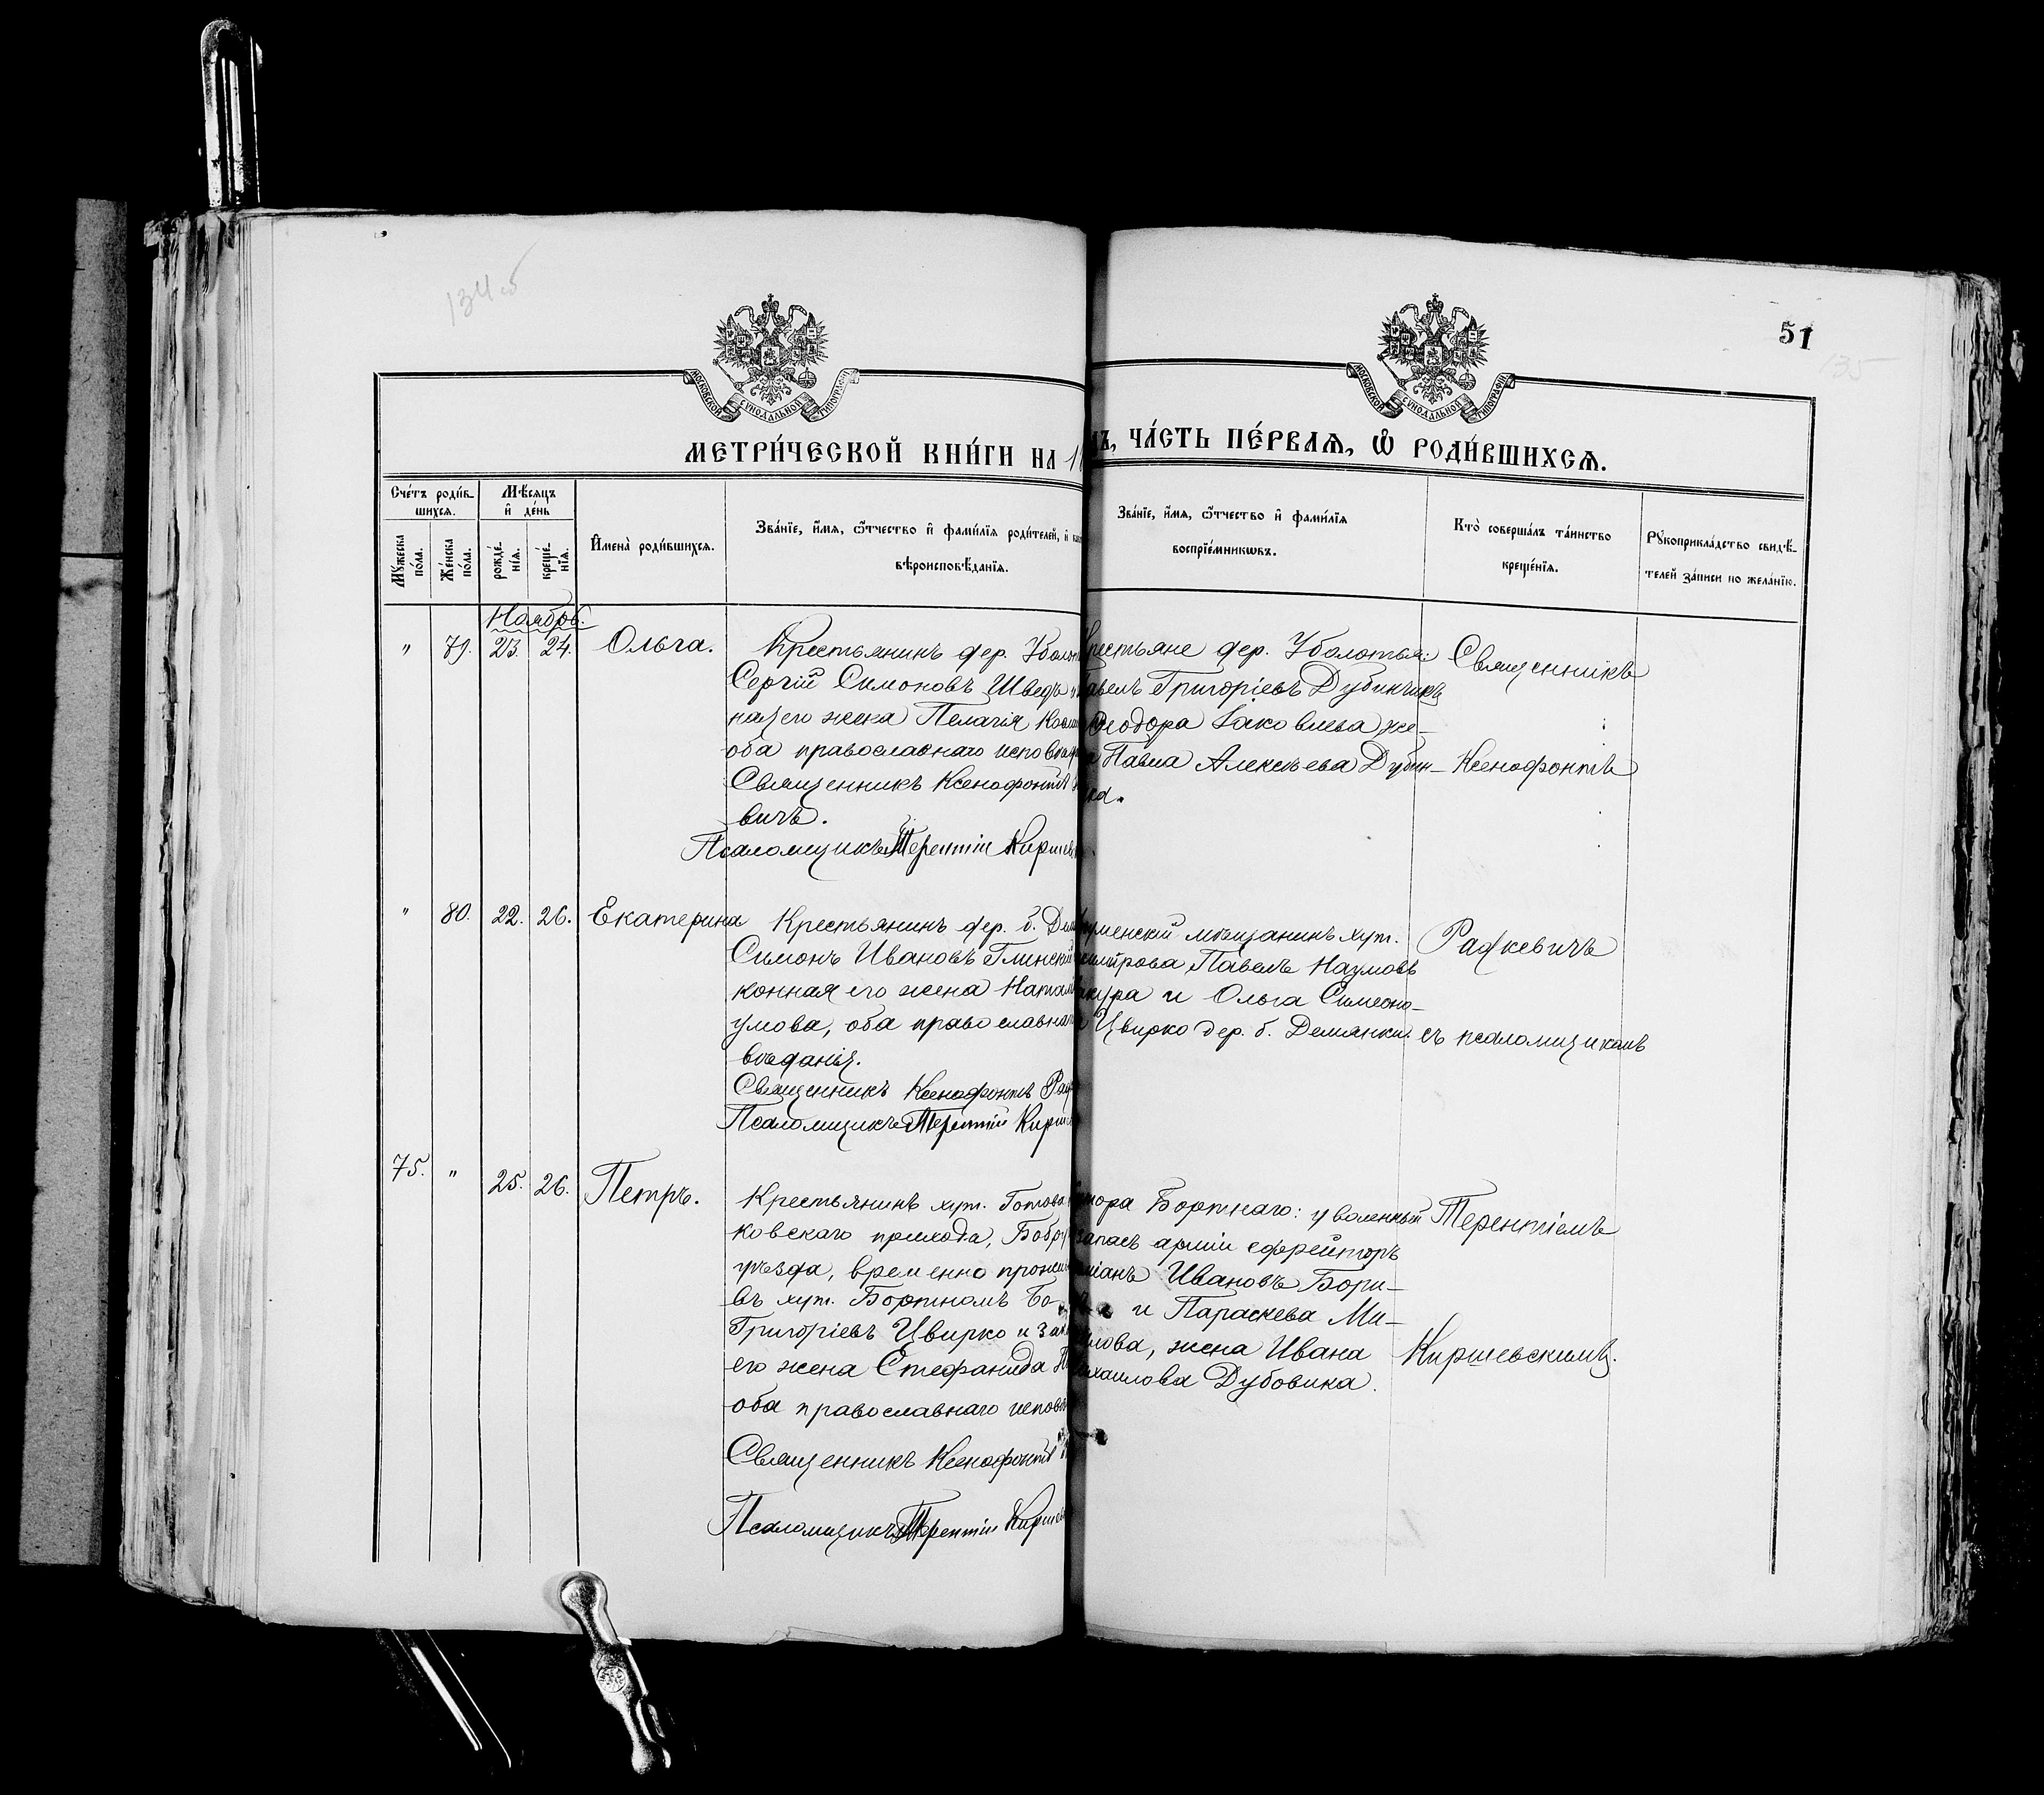 134об
51
135
МОСКОВСКОЙ СѴНОДАЛЬНОЙ ТИПОГРАФІИ
МОСКОВСКОЙ СѴНОДАЛЬНОЙ ТИПОГРАФІИ
МЕТРИ́ЧЕСКОЙ КНИ́ГИ НА 1
ЧА́СТЬ ПЕ́РВАѦ, Ѡ РОДИ́ВШИХСѦ.
Сче́тъ роди́в-
шихсѧ.
Му́жеска по́ла.
Же́нска по́ла.
Мѣ́сѧцъ
и҆ де́нь
рожде́-
нїѧ.
креще́-
нїѧ.
И҆мена̀ роди́вшихсѧ.
Зва́нїе, и҆́мѧ, ѻ҆́тчество и҆ фами́лїѧ роди́телей, и҆
вѣроисповѣ́данїѧ.
Зва́нїе, и҆́мѧ, ѻ҆́тчество и҆ фами́лїѧ
воспрїе́мникωвъ.
Кто̀ соверша́лъ та́инство
креще́нїѧ.
Рꙋкоприкла́дство свидѣ́-
телей за́писи по жела́нїю.
Ноябрь.
" 79. 23. 24. Ольга.
Крестьянинъ дер. Уболоть
Сергій Симоновъ Шведъ и
ная его жена Пелагія
оба православнаго исповѣд
Священникъ Ксенофонтъ
вичъ.
Псаломщикъ Терентій Кирш
Крестьяне дер. Уболотья:
Павелъ Григоріевъ Дубинчикъ
Ѳеодора Іаковлева, же-
на Павла Алексѣева Дубин-
ка.
Священникъ
Ксенофонтъ
" 80. 22. 26. Екатерина
Крестьянинъ дер. б.
Симонъ Ивановъ Глинскій
конная его жена Натал
умова, оба православнаго
вѣданія.
Священникъ Ксенофонтъ Рад
Псаломщикъ Терентій Кирш
уменскій мѣщанинъ хут.
Павелъ Наумовъ
и Ольга Симеоно-
Цвирко дер. б. Демянки.
Радкевичъ
съ псаломщикомъ
75. " 25. 26. Петръ.
Крестьянинъ хут.
ковскаго прихода, Бобру
уѣзда, временно прожив
въ хут. Бортномъ
Григоріевъ Цвирко и зак
его жена Стефанида
оба православнаго исповѣ
Священникъ Ксенофонтъ
Псаломщикъ Терентій Кирше
тора Бортнаго: уволенный
запасъ арміи ефрейторъ
Ивановъ Бори-
и Параскева Ми-
лова, жена Ивана
ихаилова Дубовика.
Терентіемъ
Киршевскимъ.